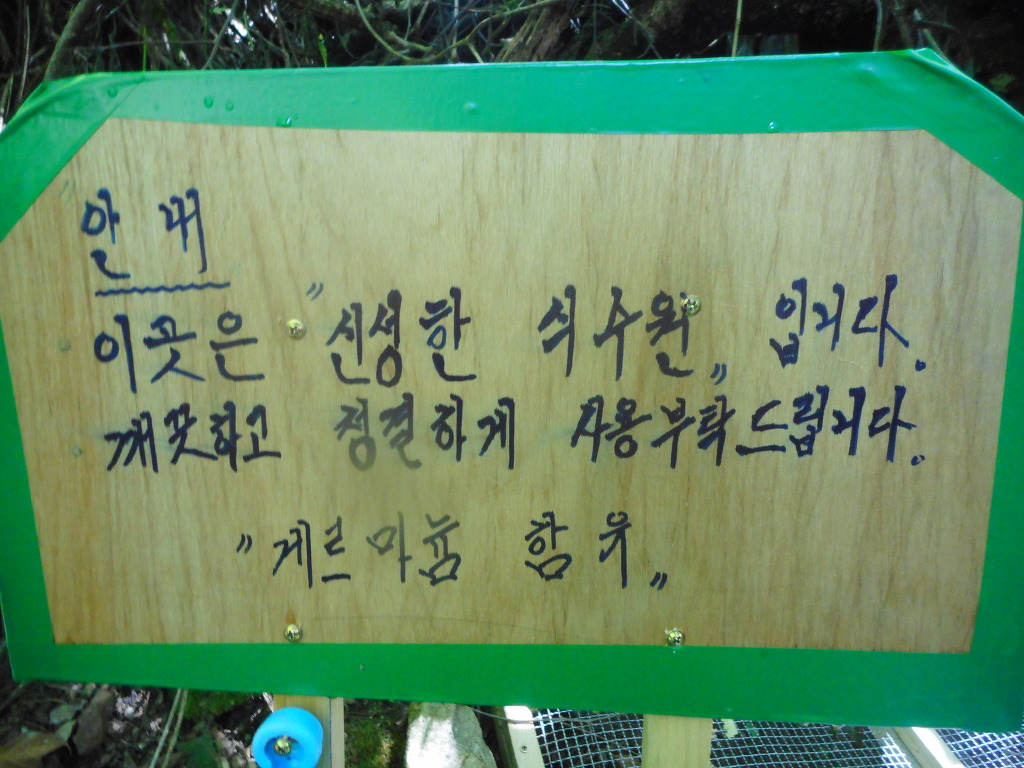 안내
이곳은 "신성한 식수원" 입니다.
깨끗하고 정결하게 사용부탁드립니다.
"게르마늄 함유"